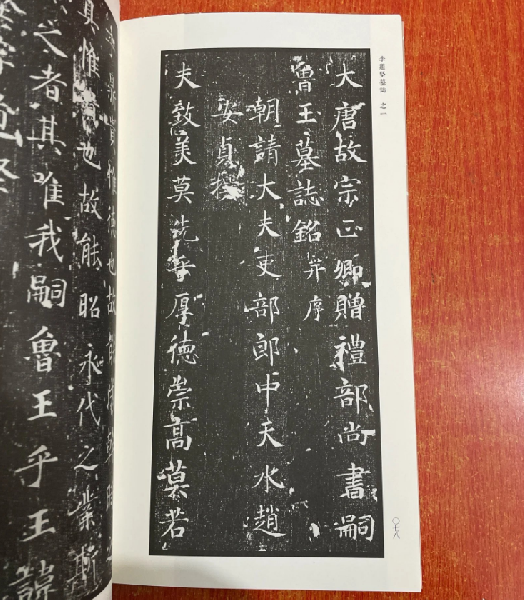 李道堅墓誌 之一
大唐故宗正卿贈禮部尚書嗣
魯王墓誌銘 并序
朝請大夫吏部郎中天水趙
安貞撰
夫敦美莫先乎厚德崇高莫若
〇七八
其惟也故能昭永代之業斯
之者其唯我嗣魯王乎王諱